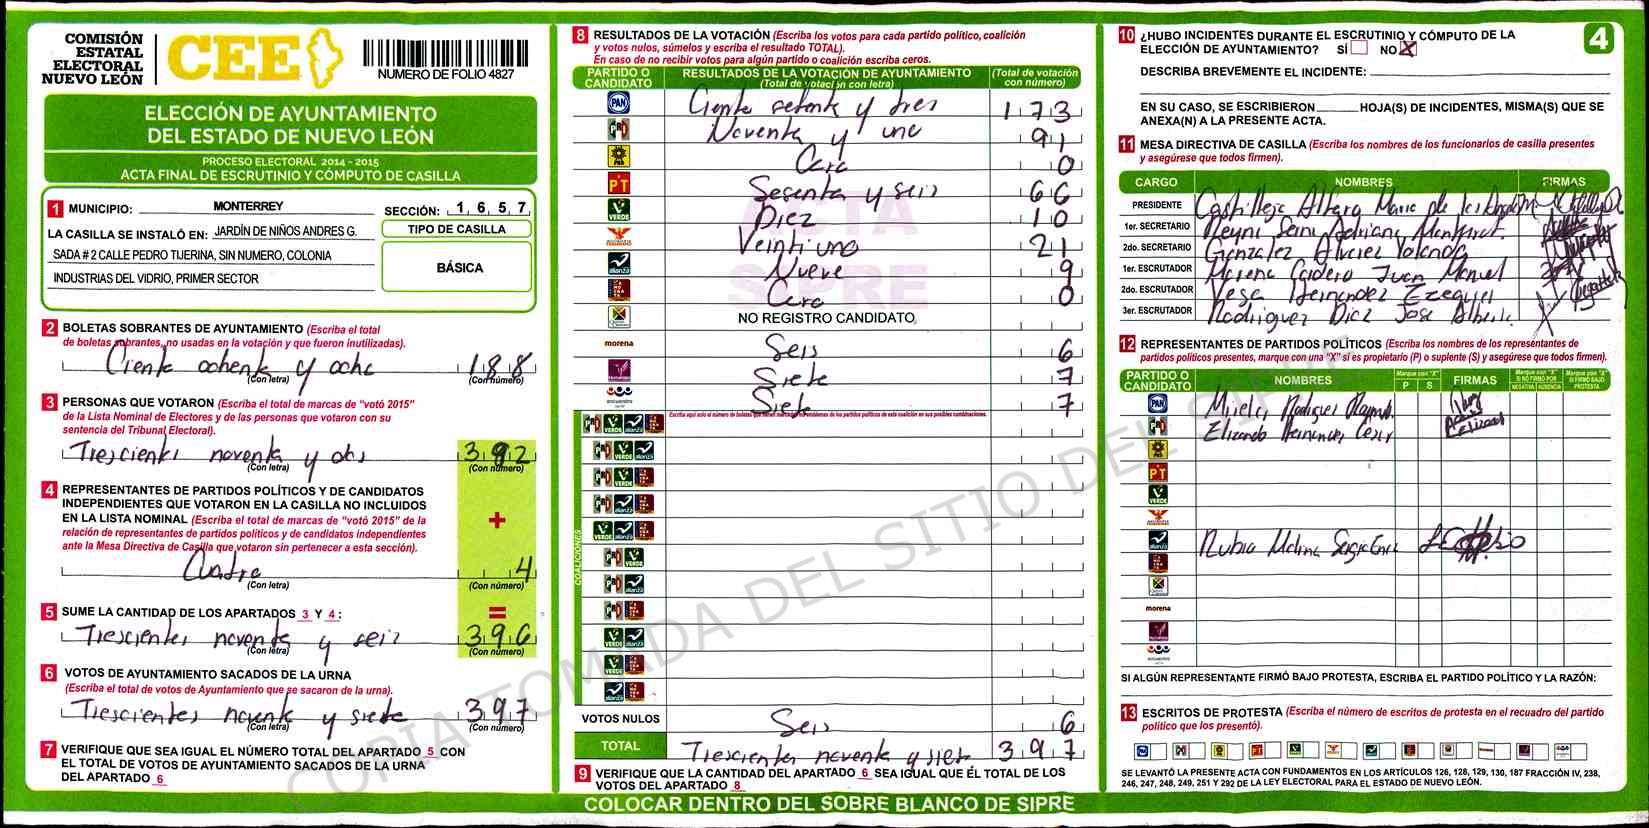 COMISIÓN
ESTATAL
ELECTORAL
NUEVO LEÓN
CEE
NUMERO DE FOLIO 4827
ELECCIÓN DE AYUNTAMIENTO
DEL ESTADO DE NUEVO LEÓN
PROCESO ELECTORAL 2014 - 2015
ACTA FINAL DE ESCRUTINIO Y CÓMPUTO DE CASILLA
1 MUNICIPIO: MONTERREY SECCIÓN: 1 6 5 7
LA CASILLA SE INSTALÓ EN: JARDÍN DE NIÑOS ANDRES G.
SADA # 2 CALLE PEDRO TIJERINA, SIN NUMERO, COLONIA
INDUSTRIAS DEL VIDRIO, PRIMER SECTOR
TIPO DE CASILLA
BÁSICA
2 BOLETAS SOBRANTES DE AYUNTAMIENTO (Escriba el total
de boletas sobrantes, no usadas en la votación y que fueron inutilizadas).
Ciento ochenta y ocho 188
(Con letra) (Con número)
3 PERSONAS QUE VOTARON (Escriba el total de marcas de “votó 2015”
de la Lista Nominal de Electores y de las personas que votaron con su
sentencia del Tribunal Electoral).
Trescientos noventa y dos 392
(Con letra) (Con número)
4 REPRESENTANTES DE PARTIDOS POLÍTICOS Y DE CANDIDATOS
INDEPENDIENTES QUE VOTARON EN LA CASILLA NO INCLUIDOS
EN LA LISTA NOMINAL (Escriba el total de marcas de “votó 2015” de la
relación de representantes de partidos políticos y de candidatos independientes
ante la Mesa Directiva de Casilla que votaron sin pertenecer a esta sección).
+
Cuatro 4
(Con letra) (Con número)
5 SUME LA CANTIDAD DE LOS APARTADOS 3 Y 4 : =
Trescientos noventa y seis 396
(Con letra) (Con número)
6 VOTOS DE AYUNTAMIENTO SACADOS DE LA URNA
(Escriba el total de votos de Ayuntamiento que se sacaron de la urna).
Trescientos noventa y siete 397
(Con letra) (Con número)
7 VERIFIQUE QUE SEA IGUAL EL NÚMERO TOTAL DEL APARTADO 5 CON
EL TOTAL DE VOTOS DE AYUNTAMIENTO SACADOS DE LA URNA
DEL APARTADO 6
8 RESULTADOS DE LA VOTACIÓN (Escriba los votos para cada partido político, coalición
y votos nulos, súmelos y escriba el resultado TOTAL).
En caso de no recibir votos para algún partido o coalición escriba ceros.
PARTIDO O CANDIDATO
RESULTADOS DE LA VOTACIÓN DE AYUNTAMIENTO
(Total de votación con letra)
(Total de votación con número)
PAN Ciento setenta y tres 173
PRD Noventa y uno 91
Cero 0
PT Sesenta y seis 66
VERDE Diez 10
Veintiuno 21
alianza Nueve 9
Cero 0
NO REGISTRO CANDIDATO
morena Seis 6
Siete 7
encuentro Siete 7
COALICIONES
VOTOS NULOS Seis 6
TOTAL Trescientos noventa y siete 397
9 VERIFIQUE QUE LA CANTIDAD DEL APARTADO 6 SEA IGUAL QUE ÉL TOTAL DE LOS
VOTOS DEL APARTADO 8
ACTA
SIPRE
COPIA TOMADA DEL SITIO DEL SIPRE
COLOCAR DENTRO DEL SOBRE BLANCO DE SIPRE
4
10 ¿HUBO INCIDENTES DURANTE EL ESCRUTINIO Y CÓMPUTO DE LA
ELECCIÓN DE AYUNTAMIENTO? SÍ NO X
DESCRIBA BREVEMENTE EL INCIDENTE:
EN SU CASO, SE ESCRIBIERON HOJA(S) DE INCIDENTES, MISMA(S) QUE SE
ANEXA(N) A LA PRESENTE ACTA.
11 MESA DIRECTIVA DE CASILLA (Escriba los nombres de los funcionarios de casilla presentes
y asegúrese que todos firmen).
CARGO NOMBRES FIRMAS
PRESIDENTE Castilleja Alfaro Maria de los
1er. SECRETARIO Adriana
2do. SECRETARIO Gonzalez Alvarez Yolanda
1er. ESCRUTADOR Moreno Cordero Juan Manuel
2do. ESCRUTADOR Vega Hernandez Ezequiel
3er. ESCRUTADOR Rodriguez Diaz Jose Alberto
12 REPRESENTANTES DE PARTIDOS POLÍTICOS (Escriba los nombres de los representantes de
partidos políticos presentes, marque con una “X” si es propietario (P) o suplente (S) y asegúrese que todos firmen).
PARTIDO O CANDIDATO
NOMBRES
Marque con “X”
P S
FIRMAS
Marque con “X” SI NO FIRMÓ POR
NEGATIVA AUSENCIA
Marque con “X” SI FIRMÓ BAJO PROTESTA
PAN Mireles Rodriguez
Elizondo Hernandez Cesar
PT
VERDE
alianza Rubio Molina Sergio
morena
SI ALGÚN REPRESENTANTE FIRMÓ BAJO PROTESTA, ESCRIBA EL PARTIDO POLÍTICO Y LA RAZÓN:
13 ESCRITOS DE PROTESTA (Escriba el número de escritos de protesta en el recuadro del partido
político que los presentó).
SE LEVANTÓ LA PRESENTE ACTA CON FUNDAMENTOS EN LOS ARTÍCULOS 126, 128, 129, 130, 187 FRACCIÓN IV, 238,
246, 247, 248, 249, 251 Y 292 DE LA LEY ELECTORAL PARA EL ESTADO DE NUEVO LEÓN.